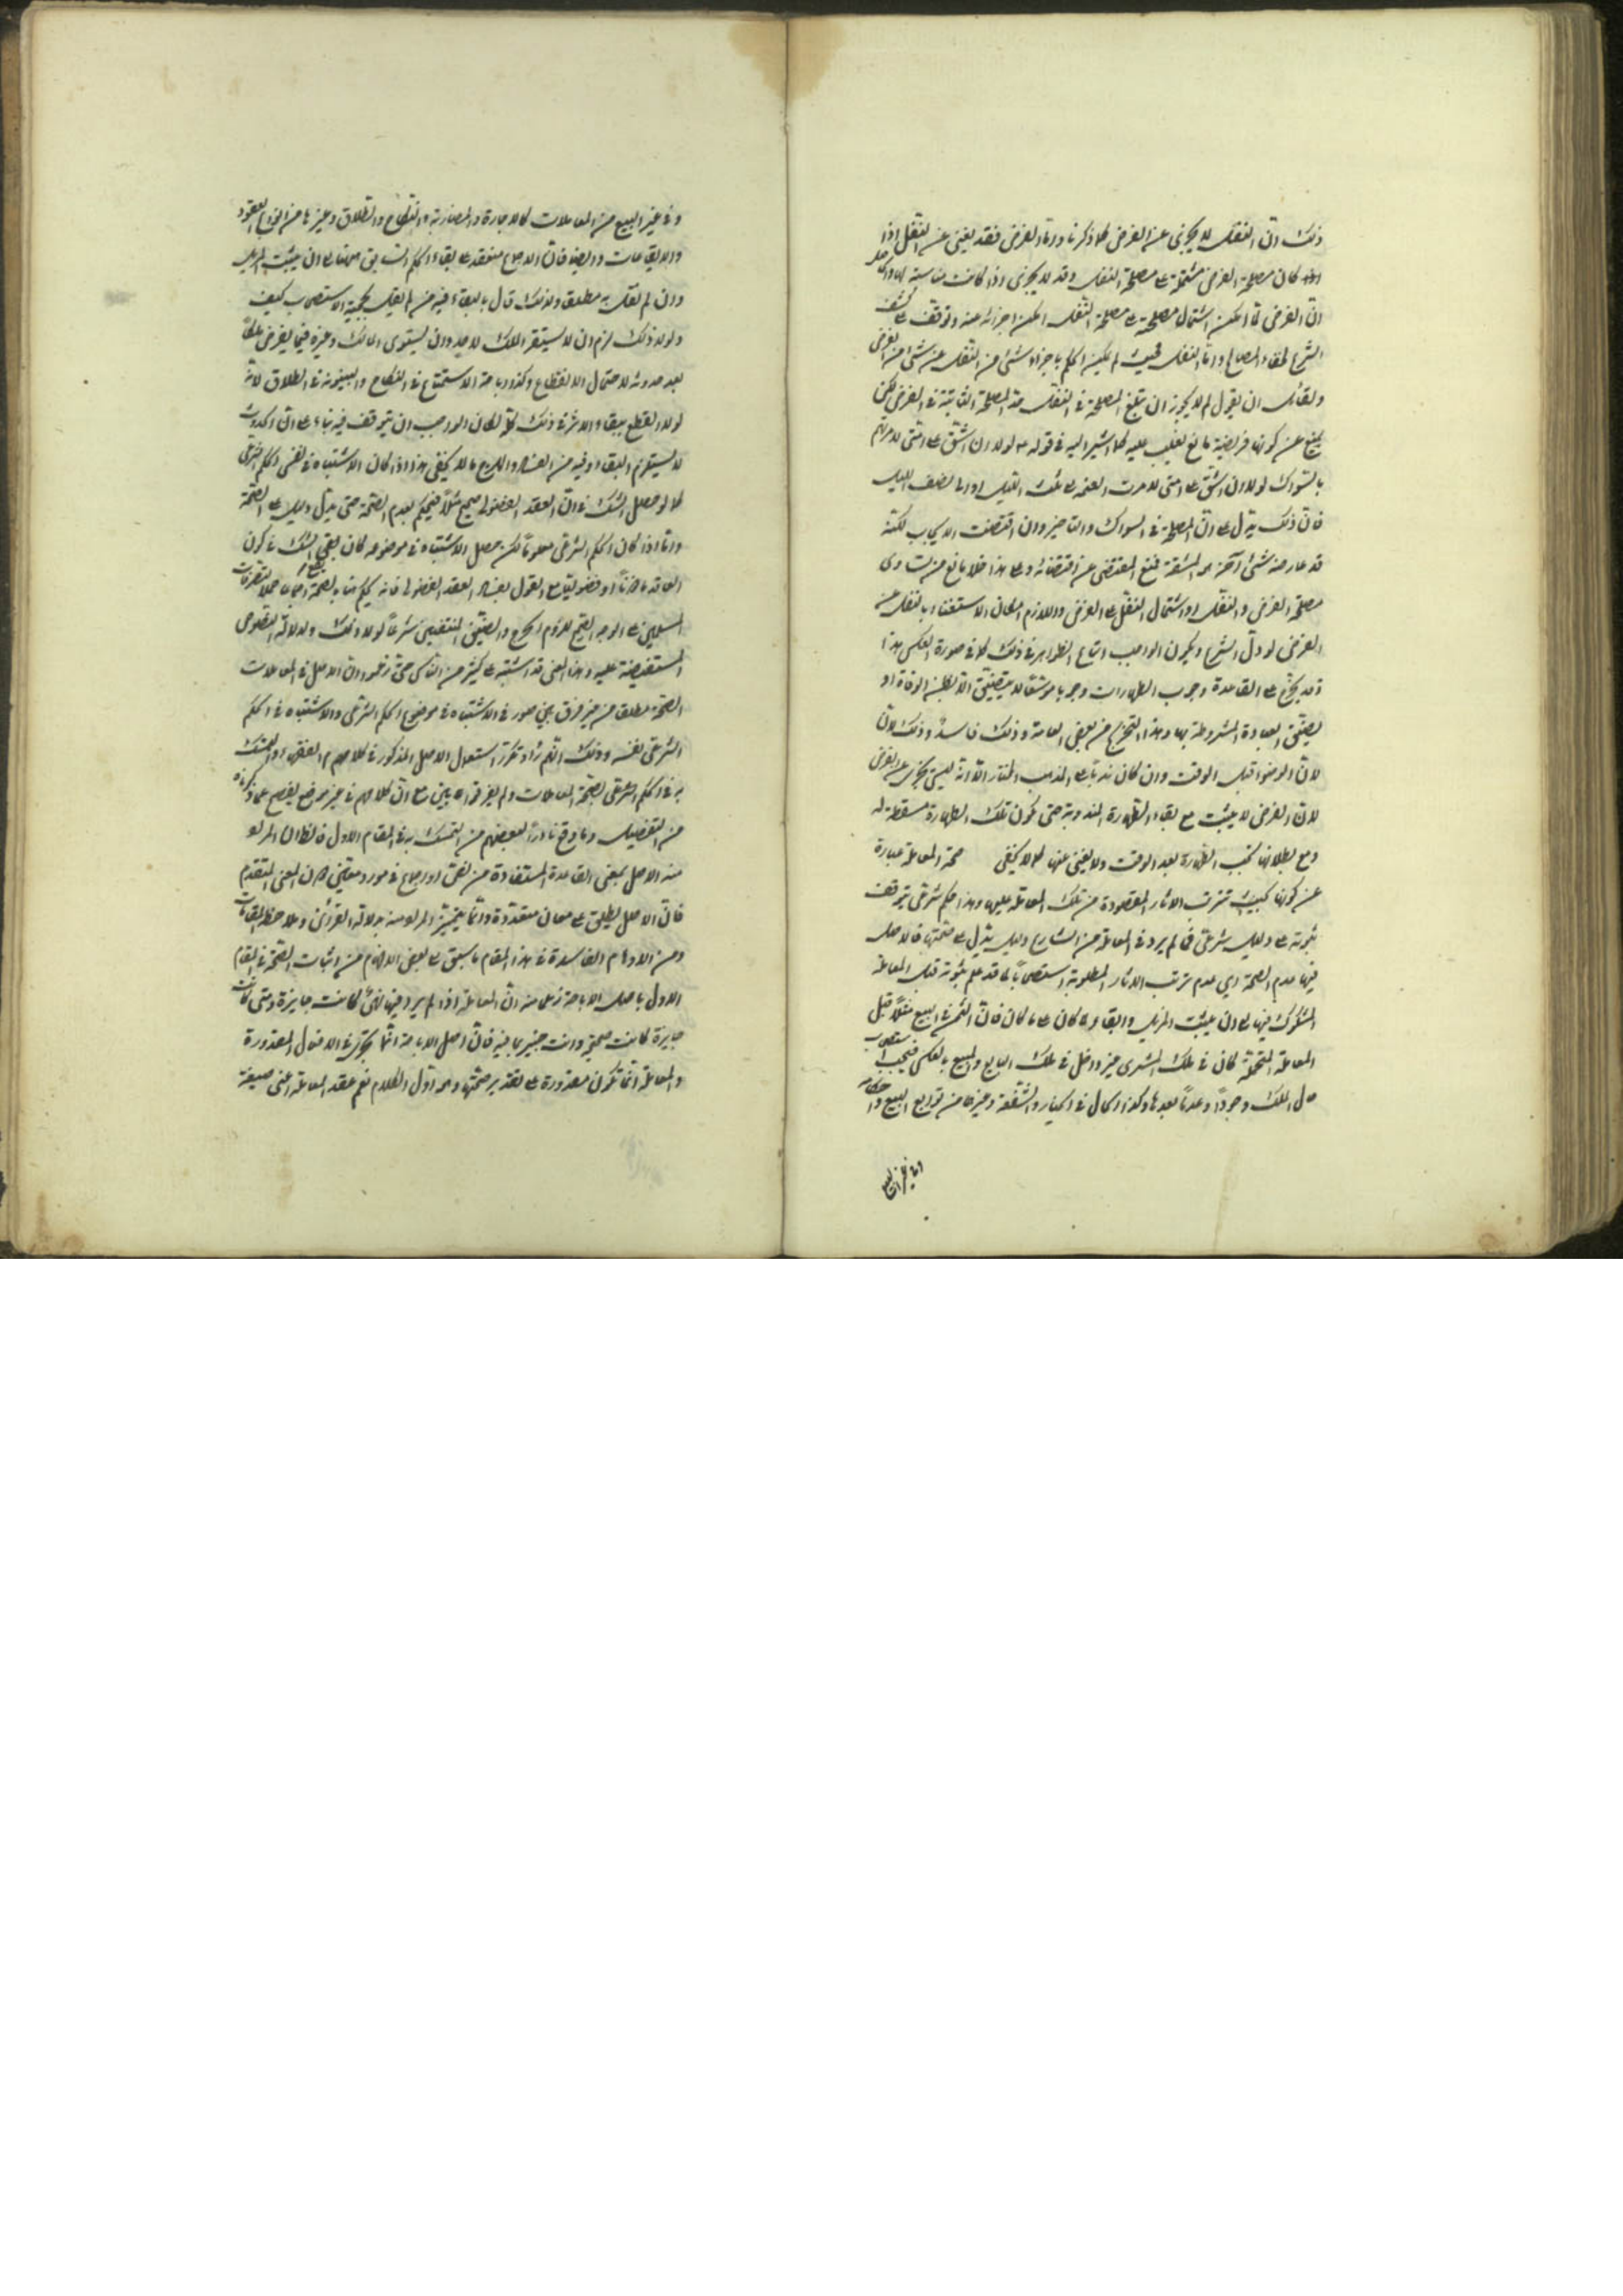 ذلك ان النفل لا يجزى عن الفرض كما ذكرنا واما الفرض فقد يغنى عن النفل اذا
كان مصلحة الفرض مشتملة على مصلحة النفل وقد لا يجزى اذا كانت
ان الفرض لما امكن اشتمال مصلحته على مصلحة النفل امكن اجزائه عنه وتوقف على كشف
الشرع لخفاء المصالح واما النفل فحيث لم يمكن الحكم باجزاء شئ من النفل عن شئ من الفرض
ولقائل ان يقول لم لا يجوز ان تبلغ المصلحة فى النفل حد المصلحة الثابتة فى الفرض لكن
يمنع عن كونها فريضة مانع يغلب عليه كما اشير اليه فى قوله ع لولا ان اشق على امتى لامرتهم
بالسواك لولا ان اشق على امتى لاخرت العتمة الى ثلث الليل او الى نصف الليل
فان ذلك يدل على ان المصلحة فى السواك والتاخير وان اقتضت الايجاب لكنه
قد عارضه شئ آخر هو المشقة فمنع المقتضى عن اقتضائه وعلى هذا فلا مانع من تساوى
مصلحة الفرض والنفل او اشتمال النفل على الفرض واللازم امكان الاستغناء بالنفل عن
الفرض لو دل الشرع ويكون الواجب اتباع الظواهر فى ذلك كما فى صورة العكس هذا
قد يخرج على القاعدة وجوب الطهارات وجوبا موسعا لا يتضيق الا بظن الوفاة او
بضيق العبادة المشروطة بها وهذا التخريج من بعض العامة وذلك فاسد وذلك لان
لان الوضوء قبل الوقت وان كان ندبا على المذهب المختار الا انه ليس يجزى عن الفرض
لان الفرض لا يثبت مع بقاء الطهارة المندوبة حتى تكون تلك الطهارة مسقطة له
ومع بطلانها تجب الطهارة بعد الوقت ولا يغنى عنها كما لا يخفى صحة المعاملة عبارة
عن كونها بحيث تترتب الاثار المقصودة من تلك المعاملة عليها وهذا حكم شرعى يتوقف
ثبوته على دليل شرعى فما لم يرد فى المعاملة من الشارع دليل يدل على صحتها فالاصل
فيها عدم الصحة اى عدم ترتب الاثار المطلوبة استصحابا لما قد علم ثبوته قبل المعاملة
المشكوك فيها الى ان يثبت المزيل وابقاء ما كان على ما كان فان الثمن فى البيع مثلا قبل
المعاملة المتحملة كان فى ملك المشترى غير داخل فى ملك البايع والمبيع بالعكس فيجب استصحاب
حال الملك وجودا وعدما بعدها وكذا الحال فى الخيار والشفعة وغيرها من توابع البيع واحكامه
وفى غير البيع من المعاملات كالاجارة والمضاربة والنكاح والطلاق وغيرها من انواع العقود
والايقاعات وايضا فان الاجماع منعقد على بقاء الحكم السابق ههنا الى ان يثبت المزيل
وان لم نقل به مطلقا ولذلك قال بالبقاء فيه من لم يقل بحجية الاستصحاب كيف
ولولا ذلك لزم ان لا يستقر الملك لاحد وان يستوى المالك وغيره فيما يفرض ملكا
بعد حدوثه لاحتمال الانقطاع وكذا اباحة الاستمتاع فى النكاح والبينونة فى الطلاق لانه
لولا القطع ببقاء الاثر فى ذلك كله لكان الواجب ان يتوقف فيه بناء على ان الحدوث
لا يستلزم البقاء وفيه من الفساد والهرج ما لا يخفى هذا اذا كان الاشتباه فى نفس الحكم الشرعى
كما لو حصل الشك فى ان العقد الفضولى صحيح مثلا فيحكم بعدم الصحة حتى يدل دليل على الصحة
واما اذا كان الحكم الشرعى معلوما لكن حصل الاشتباه فى موضوعه كان يقع الشك فى كون
العاقد ماذونا او فضوليا مع القول بفساد العقد الفضولى فانه يحكم هنا بالصحة حملا لتصرفات
المسلمين على الوجه الصحيح للزوم الحرج والضيق المنتفيين شرعا لولا ذلك ولدلالة النصوص
المستفيضة عليه وهذا المعنى قد اشتبه على كثير من الناس حتى زعموا ان الاصل فى المعاملات
الصحة مطلقا من غير فرق بين صور الاشتباه فى موضوع الحكم الشرعى والاشتباه فى الحكم
الشرعى نفسه وذلك انهم راوا تكرر استعمال الاصل المذكور فى كلامهم الفقهاء والتمسك
به فى الحكم الشرعى لصحة المعاملات ولم يفرقوا مع ان كلامهم فى غير موضع يفصح عما ذكرناه
من التفصيل وما وقع نادرا لبعضهم من التمسك به فى المقام الاول فالظاهر ان المراد
منه الاصل بمعنى القاعدة المستفادة من نص او اجماع فى مورد معين دون المعنى المتقدم
فان الاصل يطلق على معان متعددة وانما يتميز المراد منه بدلالة القرائن وملاحظة المقامات
ومن الاوهام الفاسدة فى هذا المقام ما سبق على بعض الاذهان من اثبات الصحة فى المقام
الاول باصل الاباحة زعما منه ان المعاملة اذا لم يرد فيها نهى كانت جايزة ومتى كانت
جايزة كانت صحيحة وانت خبير بما فيه فان اصل الاباحة انما يجرى فى الافعال المقدورة
والمعاملة انما تكون مقدورة على تقدير صحتها وهو اول الكلام نعم عقد المعاملة اعنى صيغة